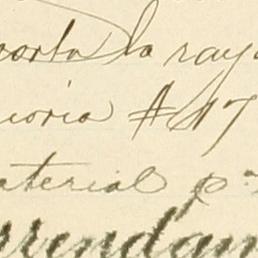 porta la raya
uoria # 17
aterial p.
rrendam